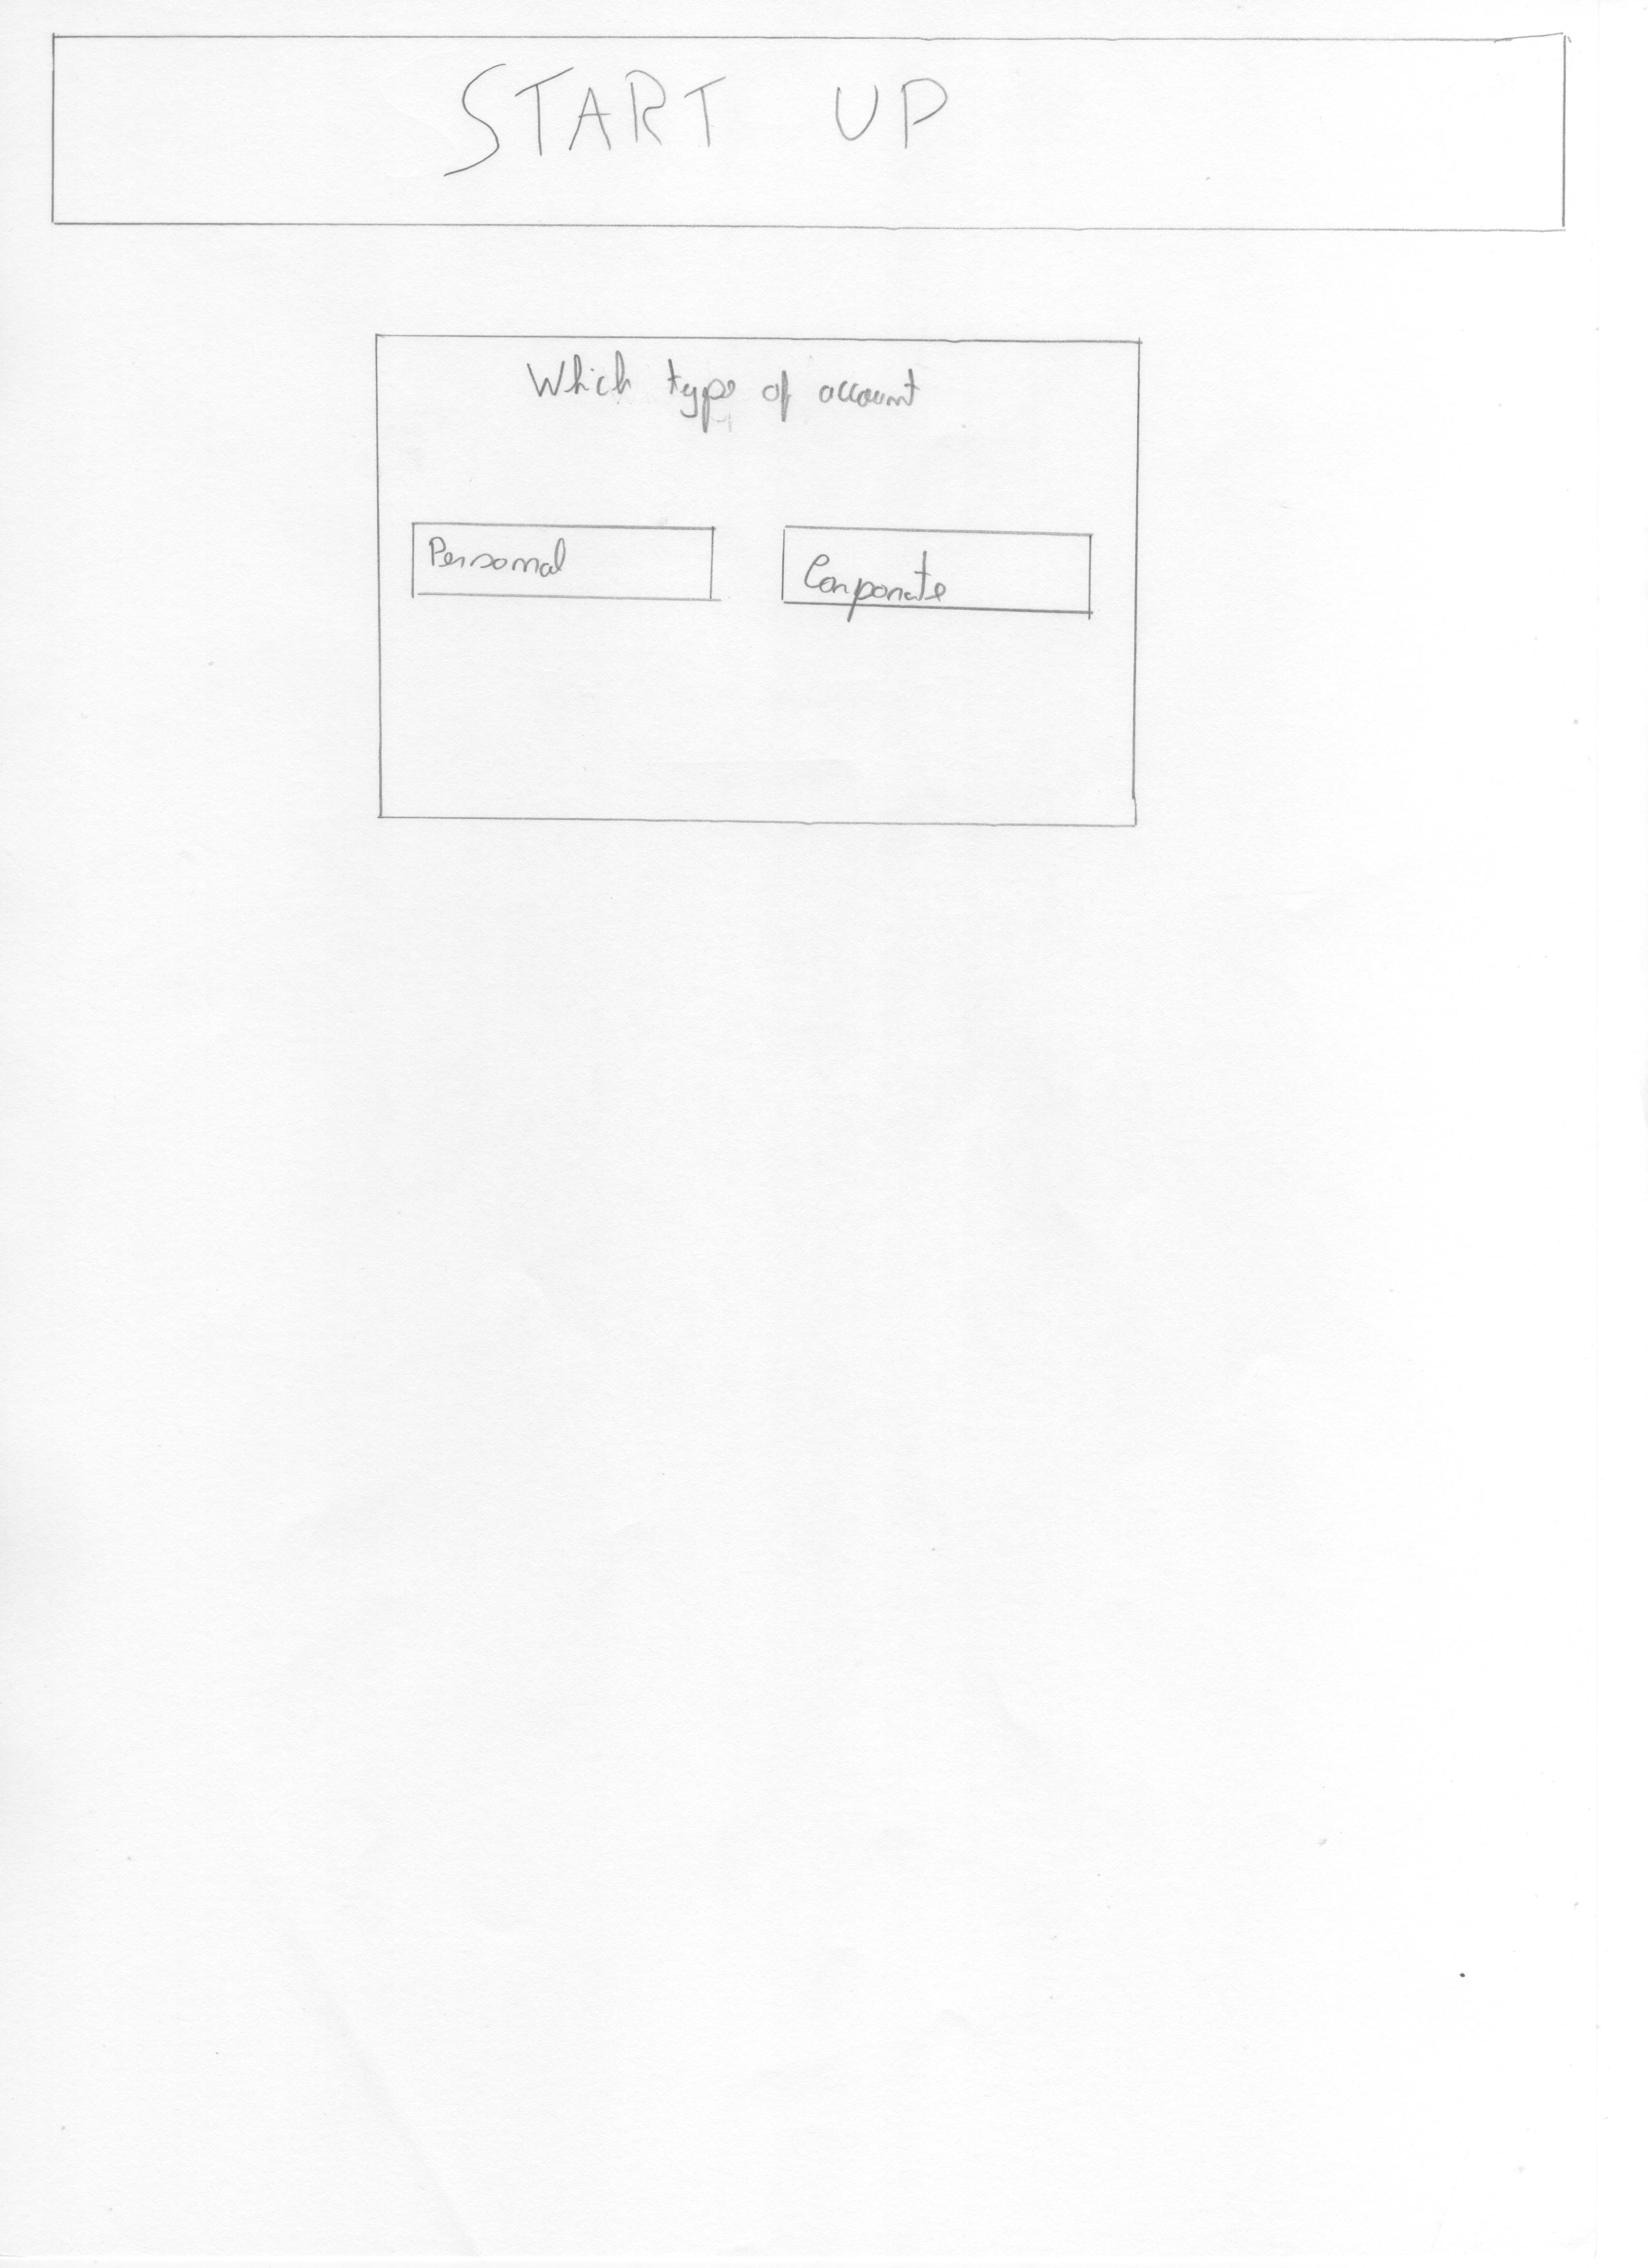 START UP
Which type of account
Personal
Corporate